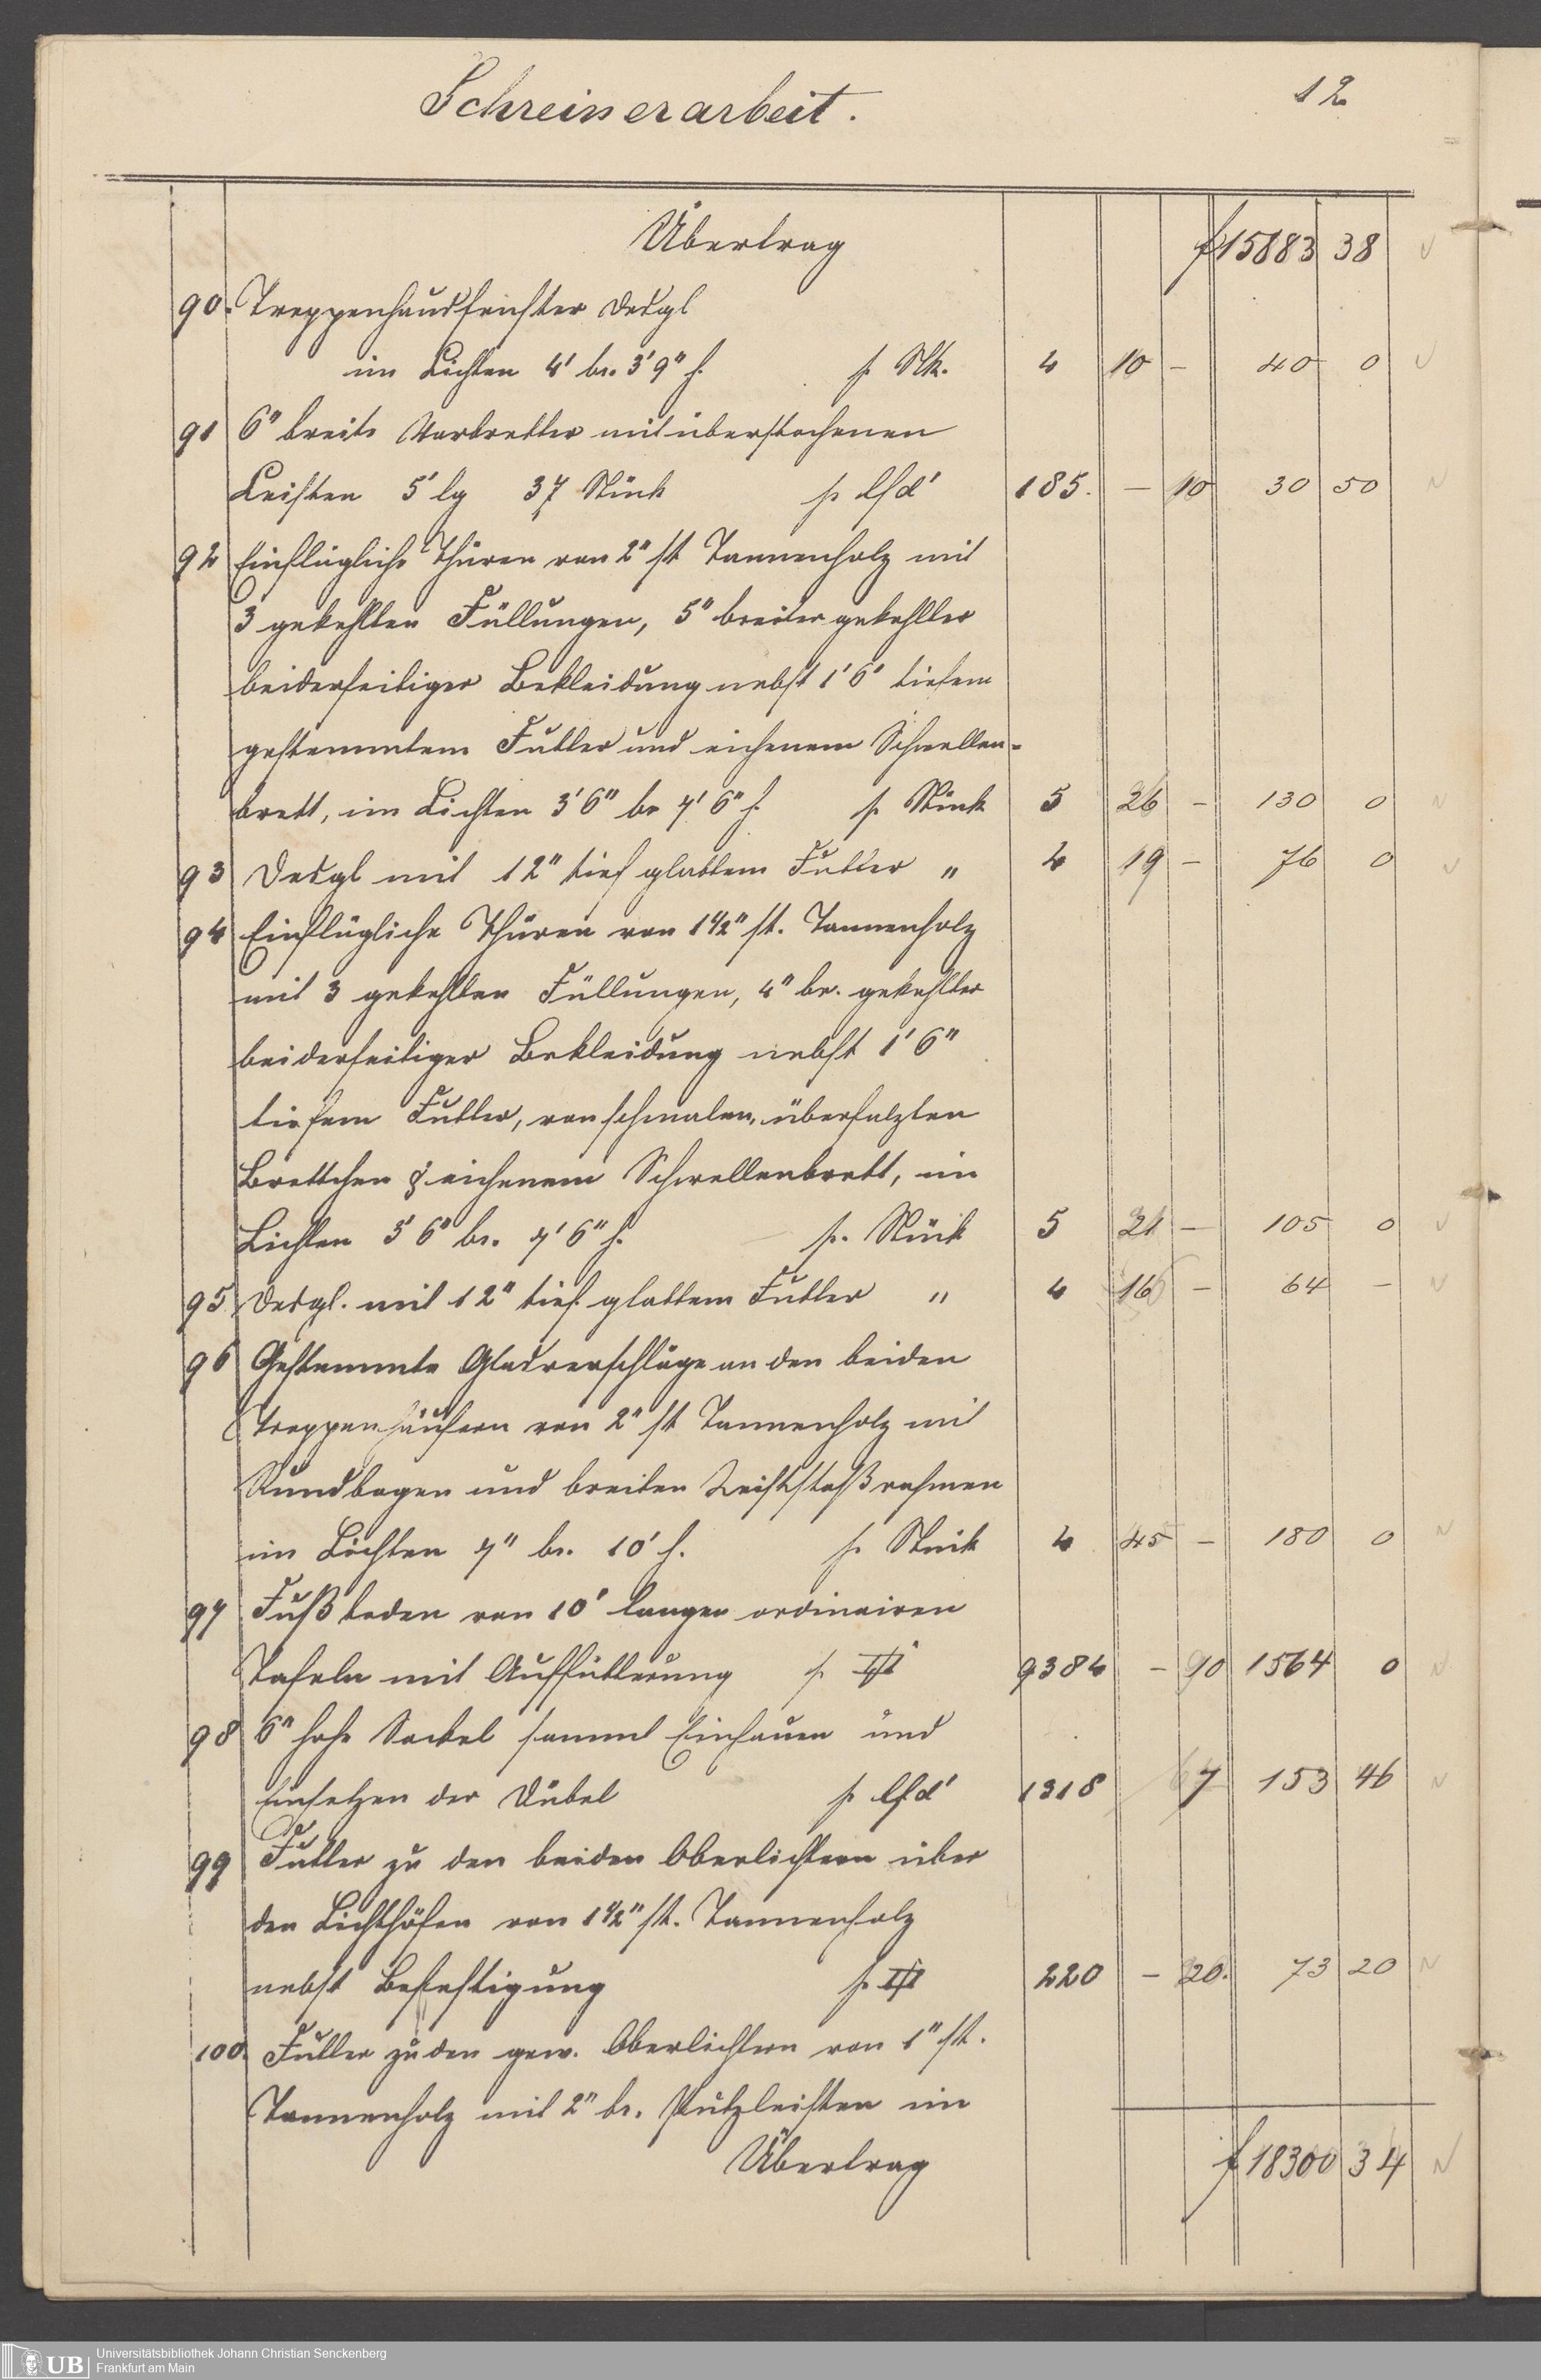 Schreinerarbeit. 12
Übertrag f 15883 38
90. Treppenhausfenster desgl
im Lichten 4' br. 3'9" h. p. Stk. 4 10 – 40 0
91 6" breite Vorbretter mit überstochenen
Leisten 5' lg 37 Stück p lfd' 185. – 10 30 50
92 Einflügliche Thüren von 2" st Tannenholz mit
3 gekehlten Füllungen, 5" breiter gekehlter
beiderseitiger Bekleidung nebst 1'6" tiefem
gestemmtem Futter und eichenem Schwellen-
brett, im Lichten 3'6" br 7'6" h. p. Stück 5 26 – 130 0
93 Desgl mit 12" tief glattem Futter " 4 19 – 76 0
94 Einflügliche Thüren von 1½" st. Tannenholz
mit 3 gekehlten Füllungen, 4" br. gekehlter
beiderseitiger Bekleidung nebst 1'6"
tiefem Futter, von schmalen, überfalzten
Brettchen & eichenem Schwellenbrett, im
Lichten 3'6" br. 7'6" h. p. Stück 5 21 – 105 0
95 desgl. mit 12" tief. glattem Futter " 4 16 – 64 –
96 Gestemmte Glasverschläge an den beiden
Treppenhäusern von 2" st Tannenholz mit
Rundbogen und breiten rahmen
im Lichten 7" br. 10' h. p. Stück 4 45 – 180 0
97 Fußboden von 10' langen ordinairen
Tafeln mit Auffütterung p. 9384 – 10 1564 0
98 6" hohe Sockel sammt Einhauen und
Einsetzen der Dübel p lfd' 1318 7 153 46
99 Futter zu den beiden Oberlichtern über
den Lichthöfen von 1½" st. Tannenholz
nebst Befestigung p. 220 – 20. 73 20
100. Futter zu den gew. Oberlichtern von 1" st.
Tannenholz mit 2" br. Putzleisten im
Übertrag f 18300 34
UB Universitätsbibliothek Johann Christian Senckenberg
Frankfurt am Main